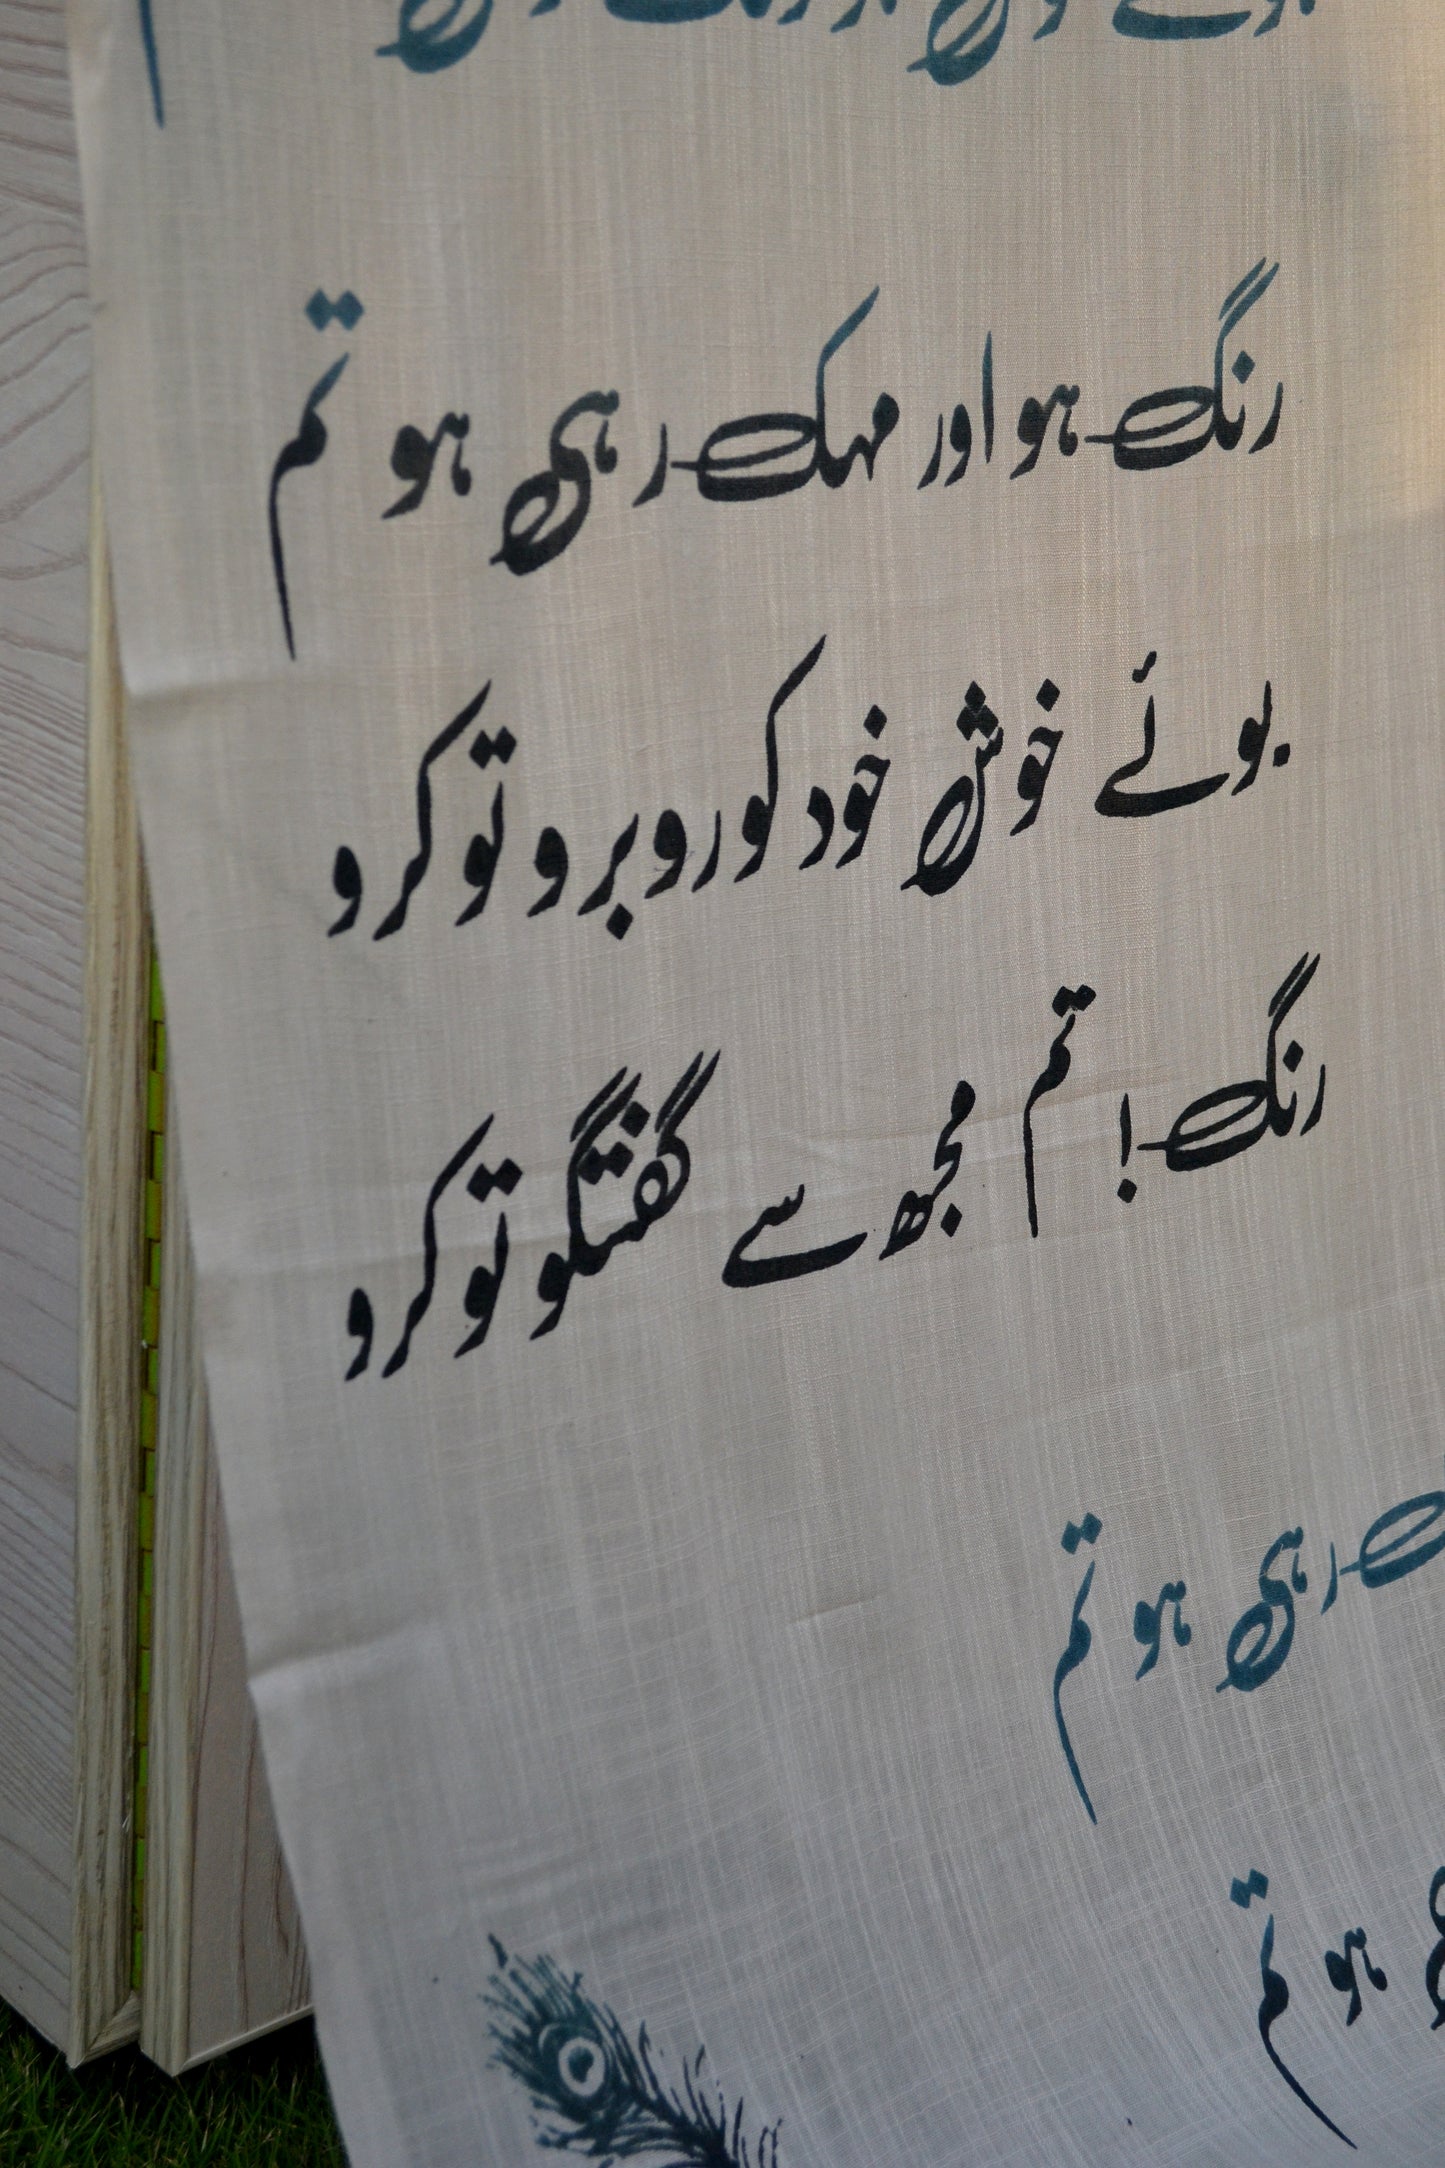 رنگ ہو اور مہک رہی ہو تم
بوئے خوش خود کو روبرو تو کرو
رنگ! تم مجھ سے گفتگو تو کرو
رہی ہو تم
ہو تم